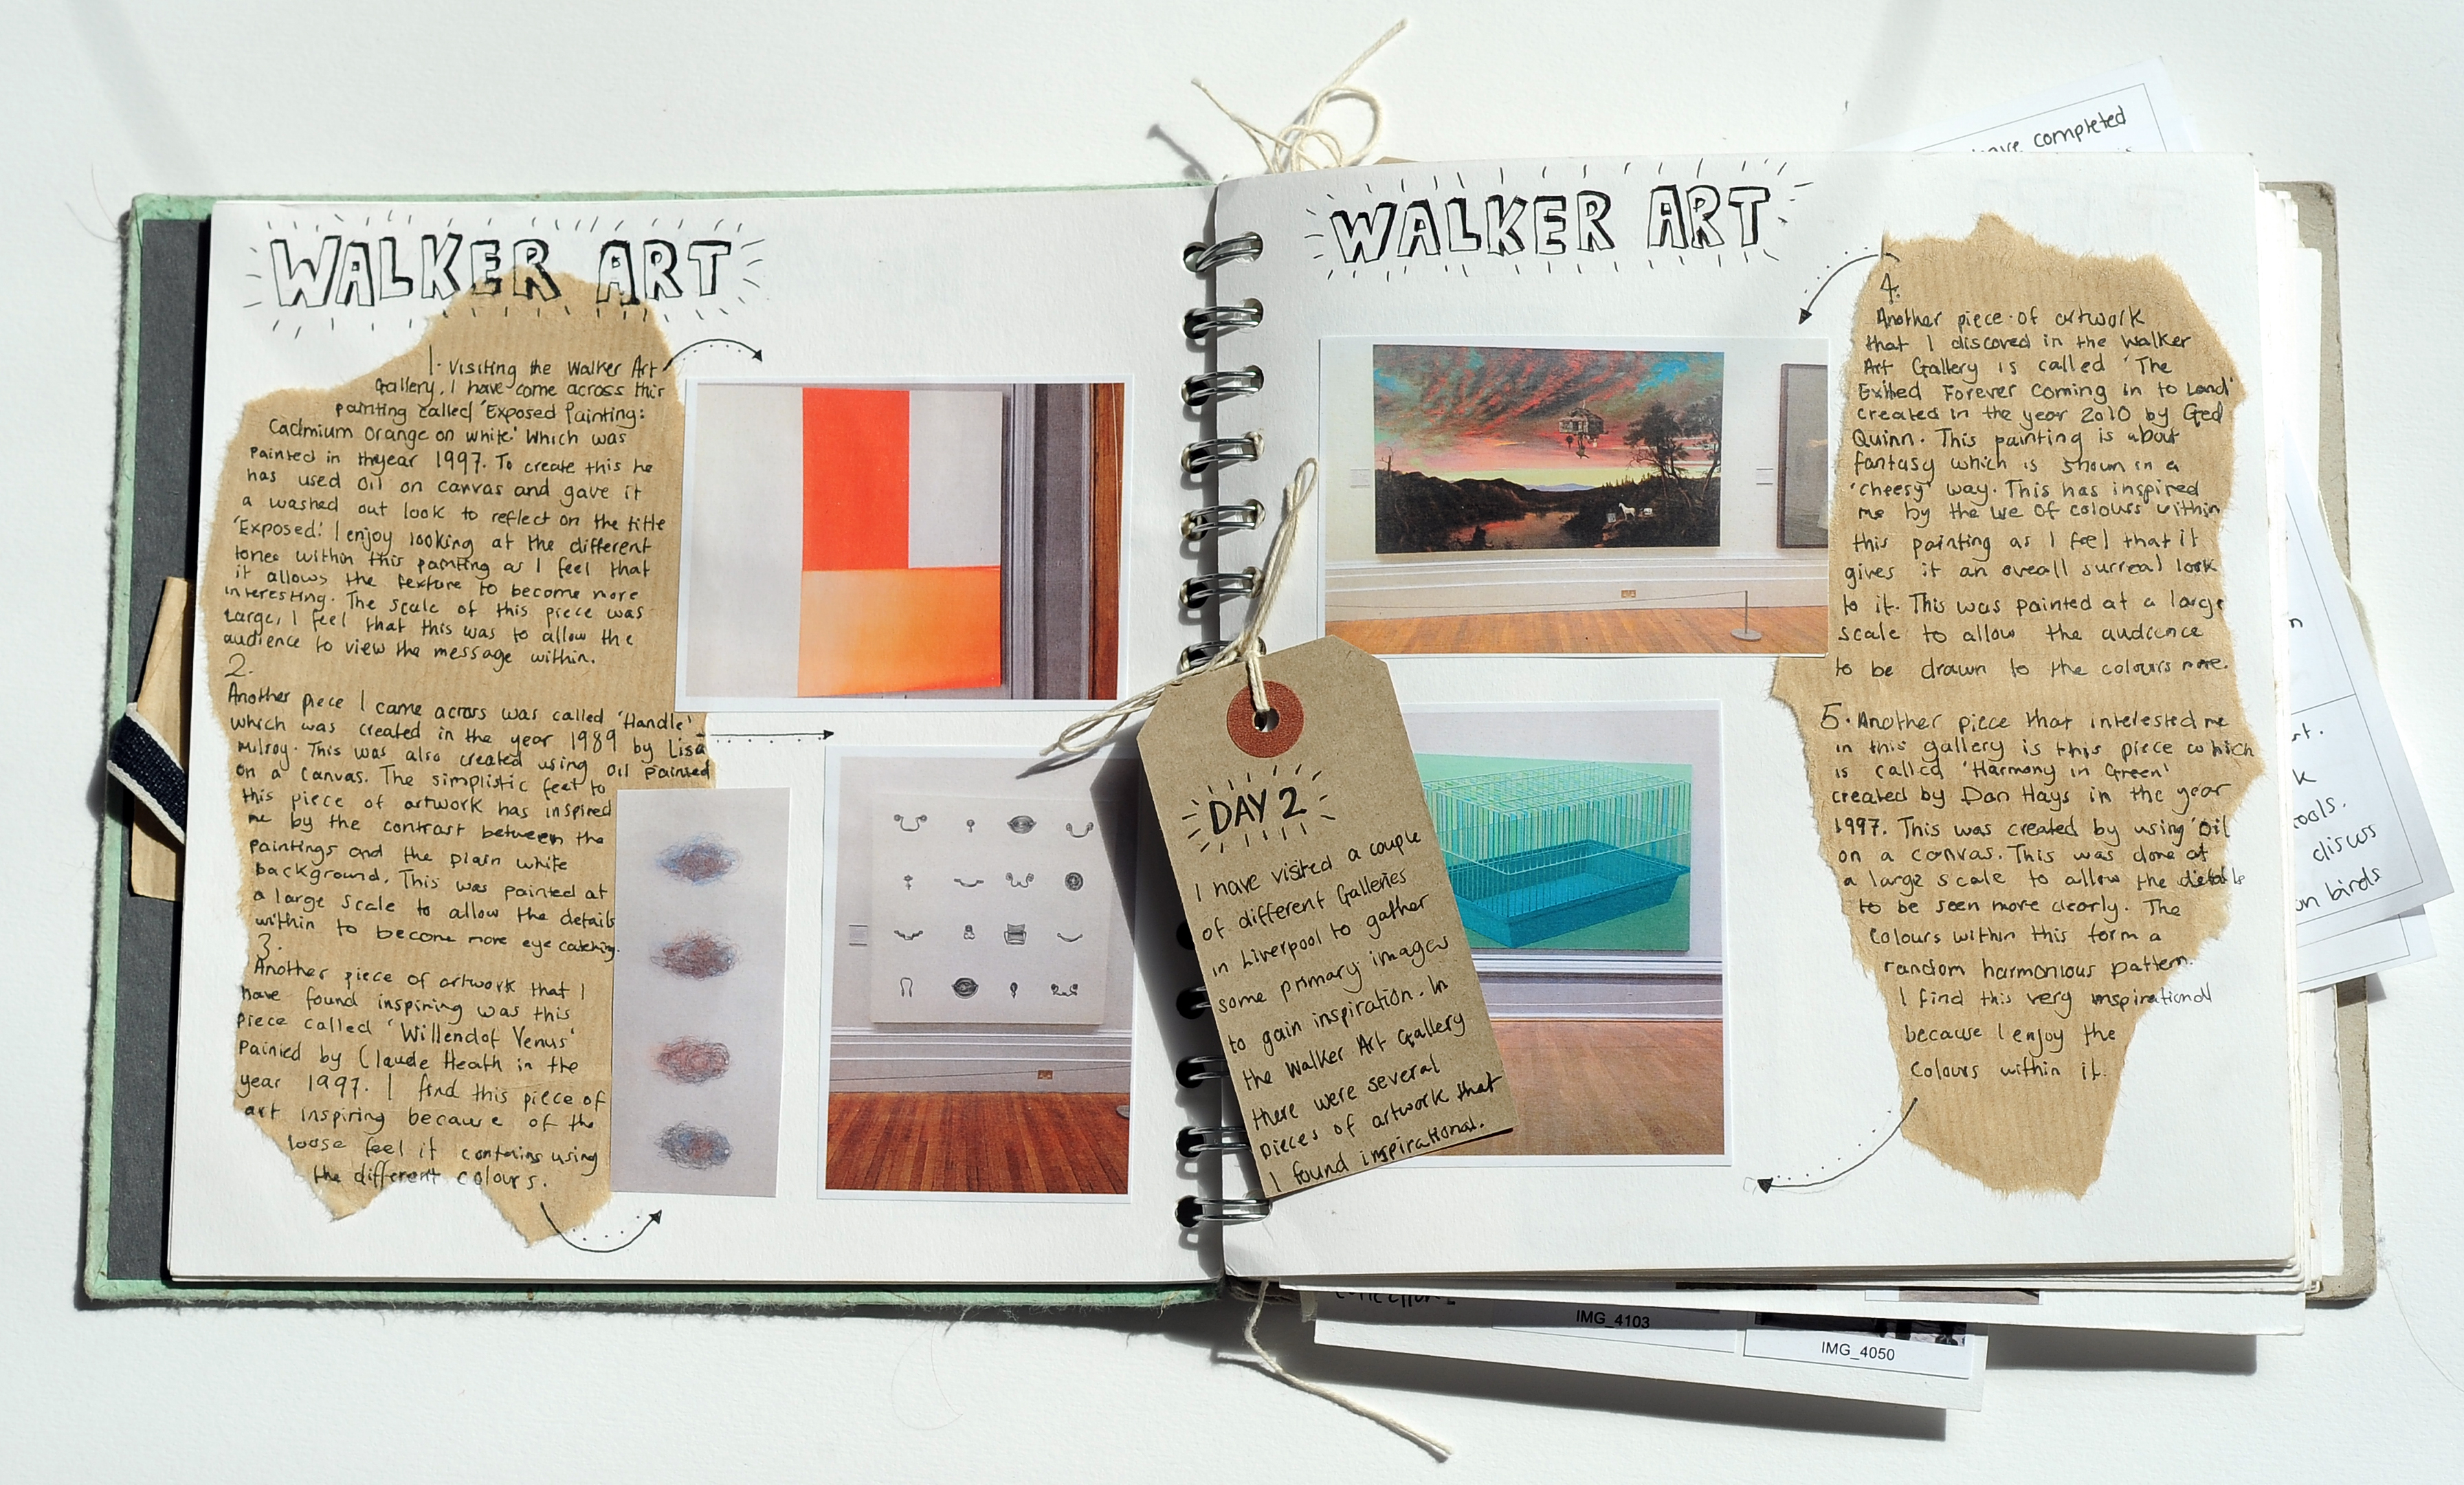 WALKER ART
1. Visiting the Walker Art
Gallery, I have come across this
painting called 'Exposed Painting:
Cadmium Orange on white.' Which was
painted in the year 1997. To create this he
has used oil on canvas and gave it
a washed out look to reflect on the title
'Exposed'. I enjoy looking at the different
tones within this painting as I feel that
it allows the texture to become more
interesting. The scale of this piece was
Large, I feel that this was to allow the
audience to view the message within.
2.
Another piece I came across was called 'Handle'
which was created in the year 1989 by Lisa
Milroy. This was also created using oil painted
on a canvas. The simplistic feel to
this piece of artwork has inspired
me by the contrast between the
paintings and the plain white
background. This was painted at
a large scale to allow the details
within to become more eye catching.
3.
Another piece of artwork that I
have found inspiring was this
piece called 'Willendof Venus'
Painted by Claude Heath in the
year 1997. I find this piece of
art inspiring because of the
loose feel it contains using
the different colours.
WALKER ART
4.
Another piece of artwork
that I discoved in the Walker
Art Gallery is called 'The
Exiled Forever Coming in to Land'
created in the year 2010 by Ged
Quinn. This painting is about
fantasy which is shown in a
'cheesy' way. This has inspired
me by the use of colours within
this painting as I feel that it
gives it an overall surreal look
to it. This was painted at a large
scale to allow the audience
to be drawn to the colours more.
5. Another piece that interested me
in this gallery is this piece which
is called 'Harmony in Green'
created by Dan Hays in the year
1997. This was created by using oil
on a canvas. This was done at
a large scale to allow the details
to be seen more clearly. The
colours within this form a
random harmonious pattern.
I find this very inspirational
because I enjoy the
colours within it.
DAY 2
I have visited a couple
of different Galleries
in Liverpool to gather
some primary images
to gain inspiration. In
the Walker Art Gallery
there were several
pieces of artwork that
I found inspirational.
have completed
n
rt.
k
tools.
discus
on birds
IMG_4103
IMG_4050